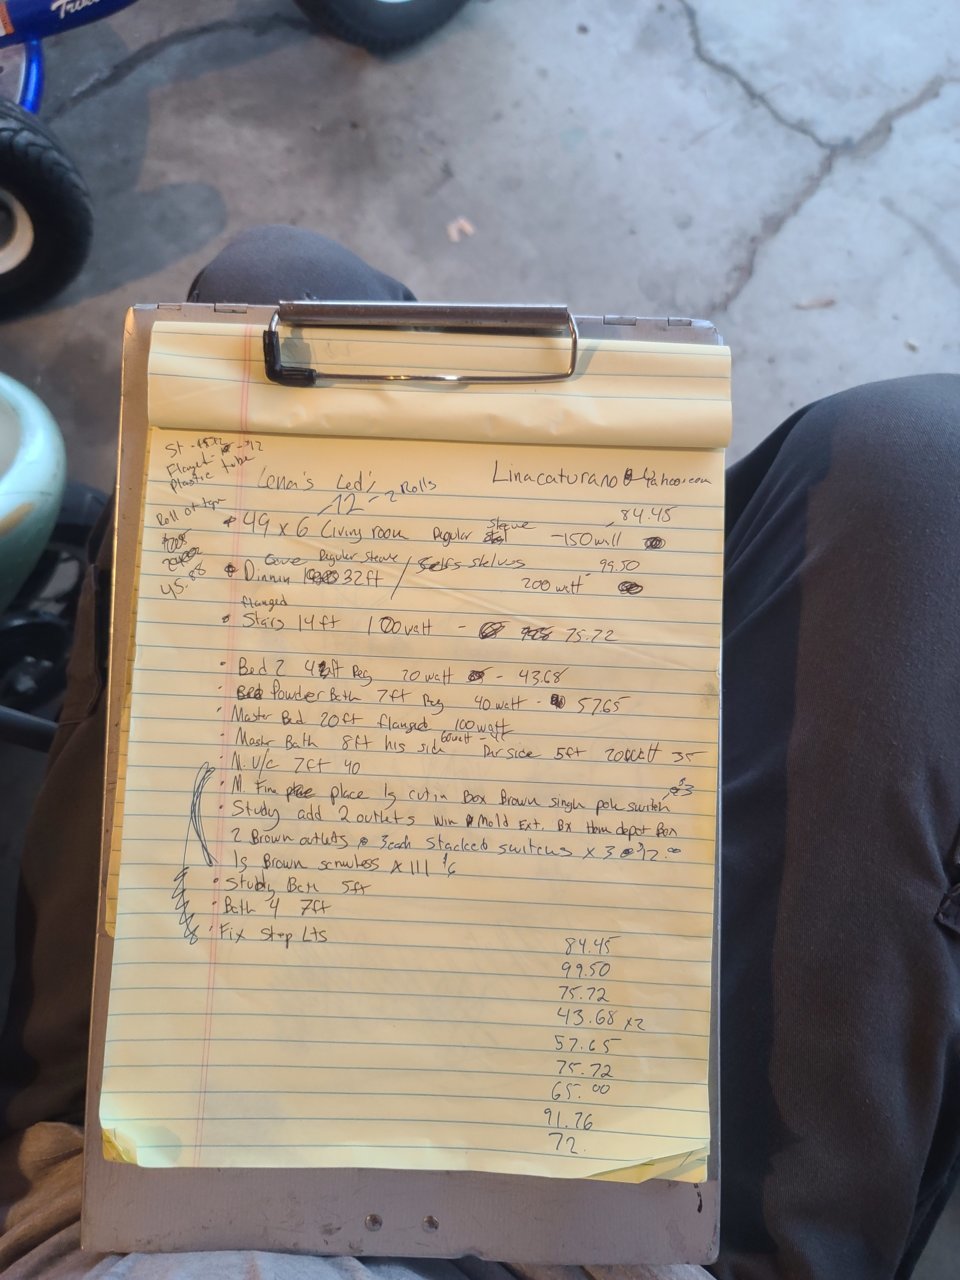 Plastic tube
Lena's Led's
Linacaturano@Yahoo.com
12 - 2 Rolls
84.45
49 x 6 Living room Regular - 150 w
Regular 99.50
Dinnin 32ft / shelves
200 watt
45.88
flanged
Stars 14ft 100 watt - 75.72
Bed 2 4ft Reg 20 watt - 43.68
Powder Bath 7ft Reg 40 watt - 57.65
Master Bed 20ft flanged 100 watt
Master Bath 8ft his side 60watt - 5ft 20watt 35
7ft 40
M. Fire place 1g cut in Box Brown single pole switch
Study add 2 outlets Mold Ext. Bx Home depot Box
2 Brown outlets 3 each Stacked switches x 3 12.00
1g Brown x 1
Study Bath 5ft
Bath 4 7ft
Fix Step Lts
84.45
99.50
75.72
43.68 x2
57.65
75.72
65.00
91.76
72.